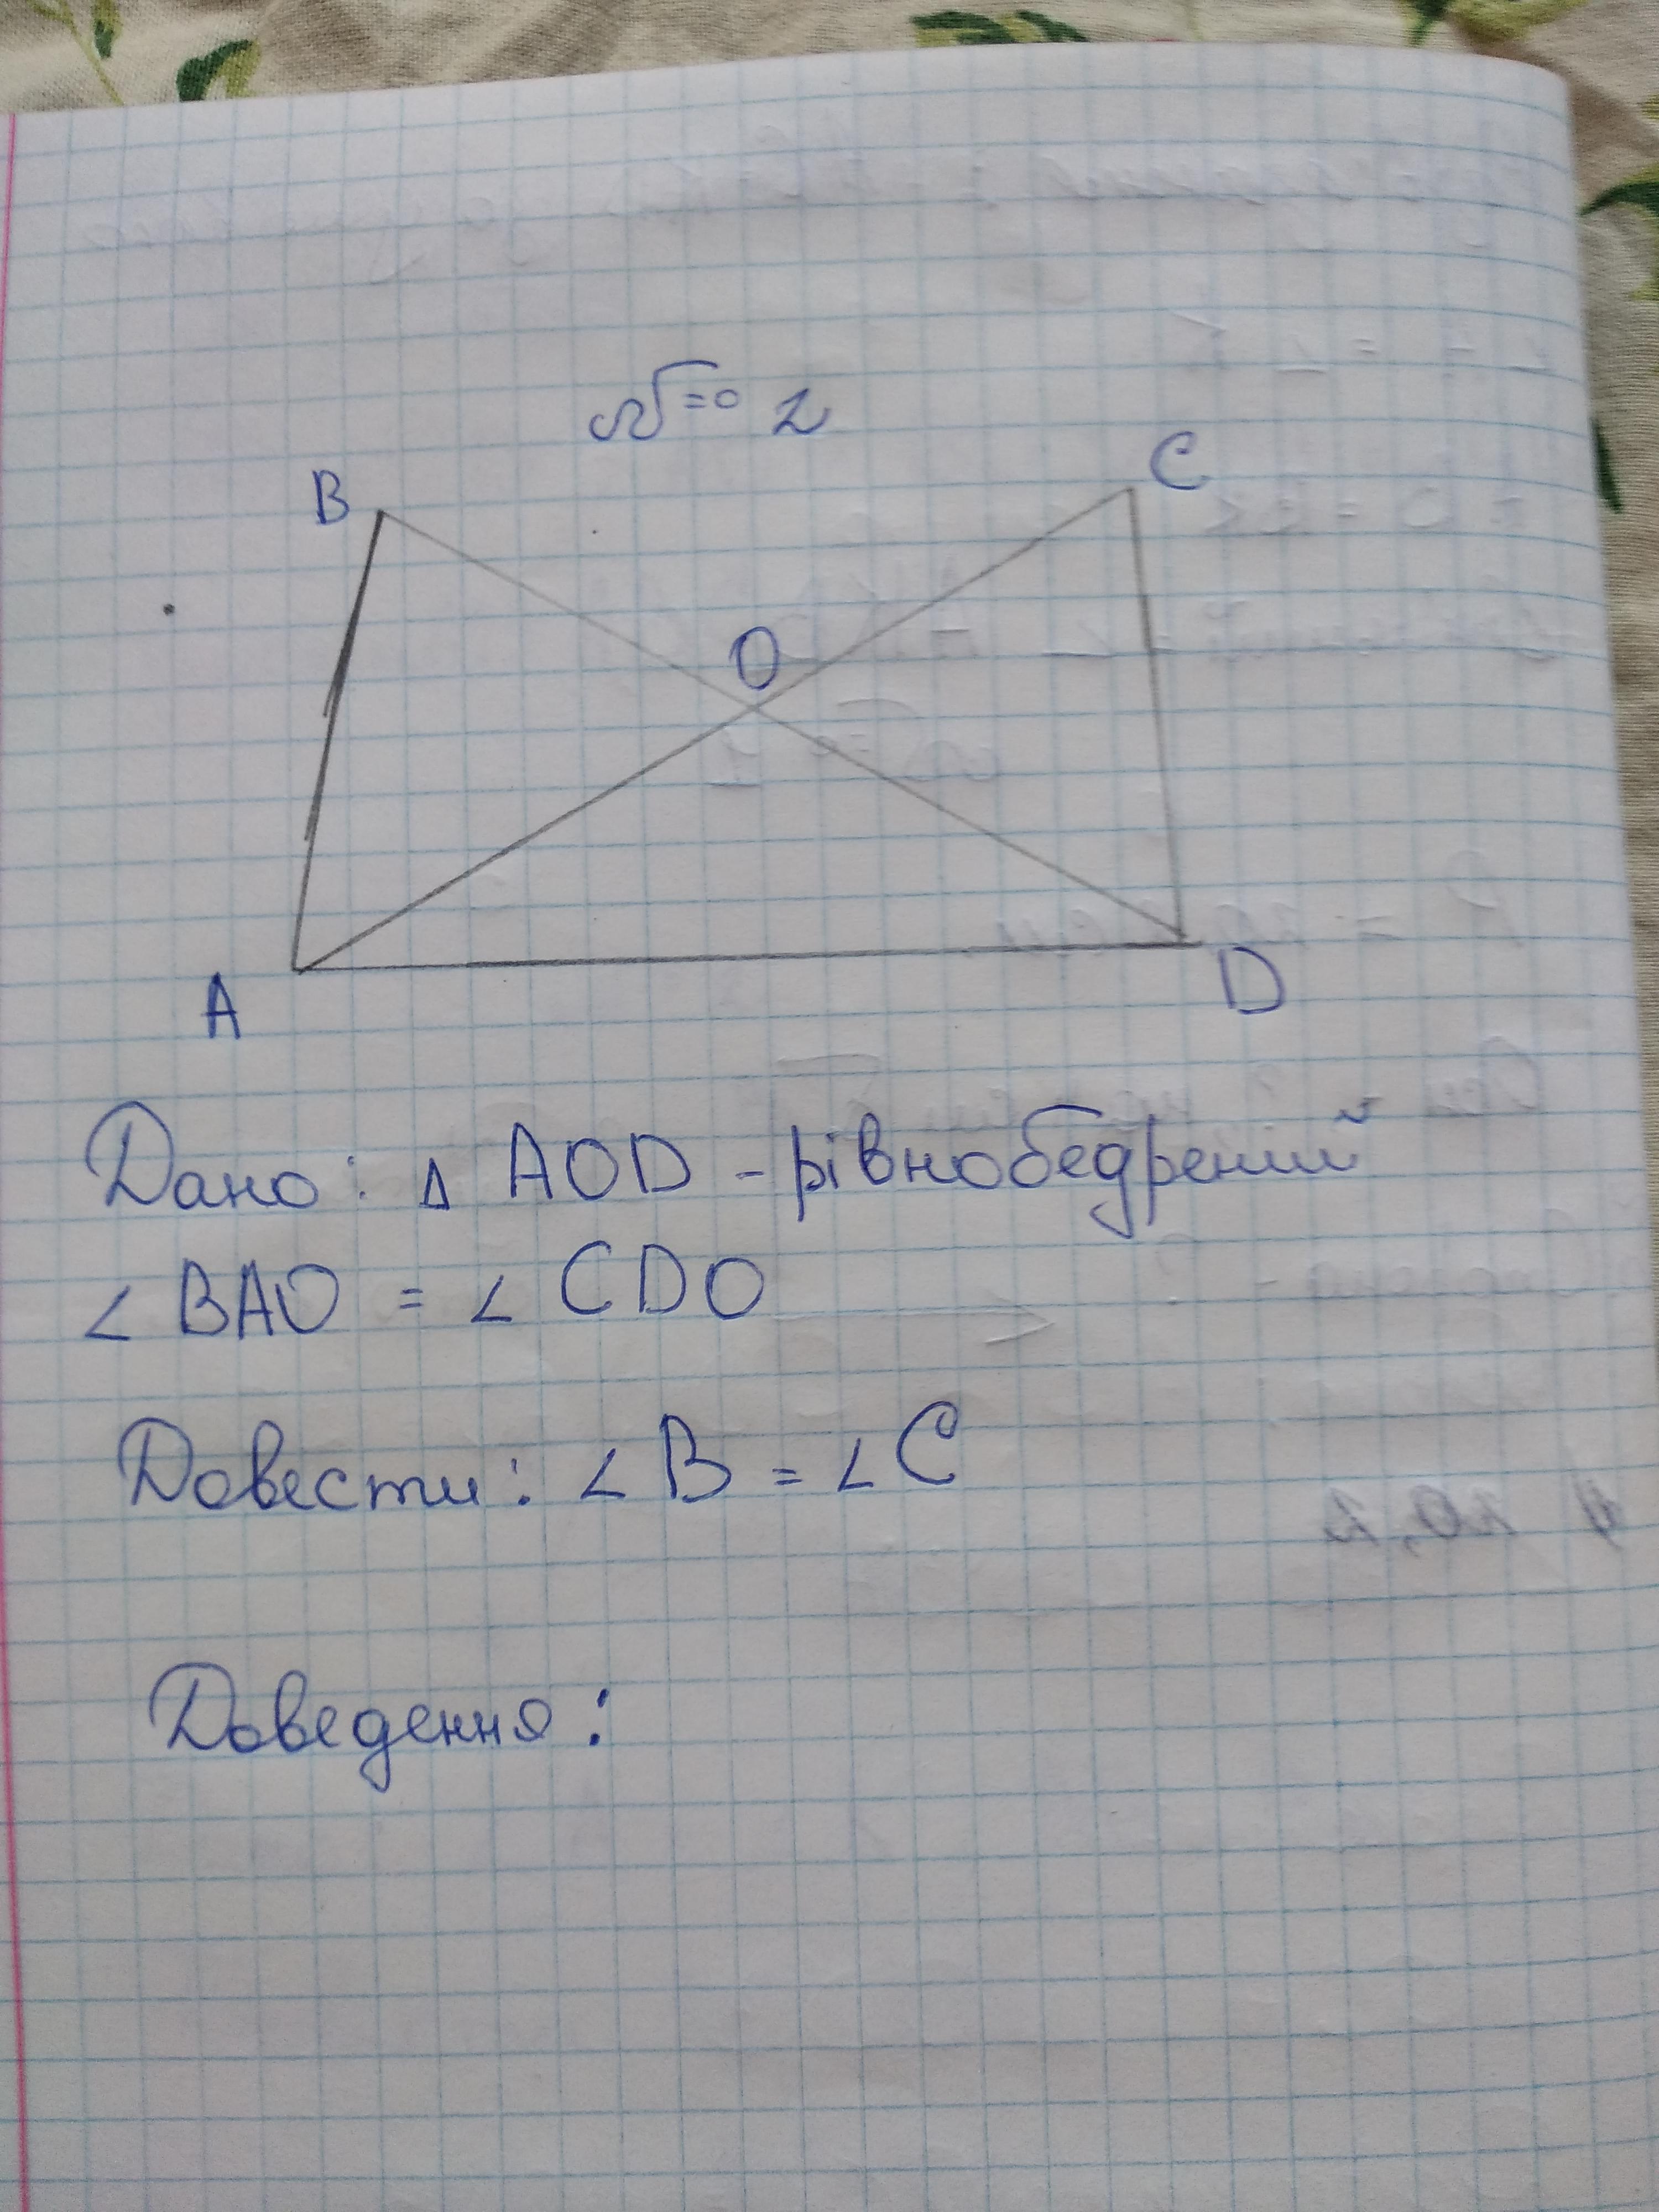 № 2
B
C
O
A
D
Дано: Δ AOD - рівнобедрений
∠ BAO = ∠ CDO
Довести: ∠ B = ∠ C
Доведення: